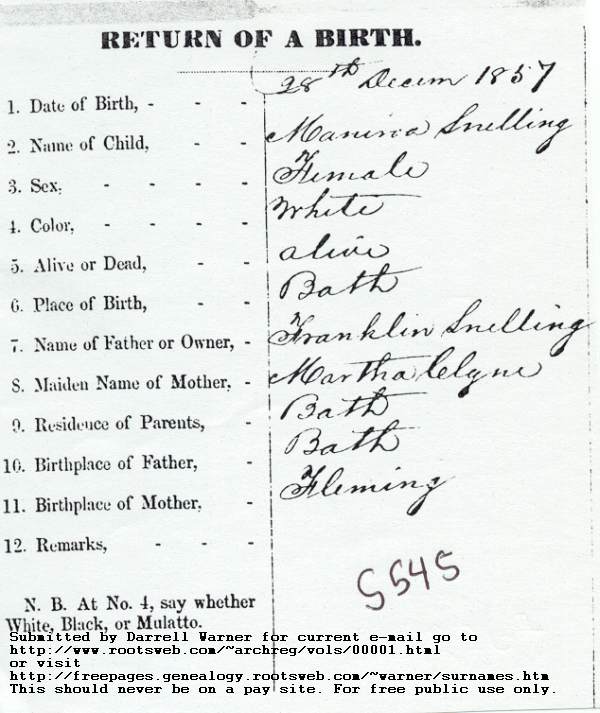 RETURN OF A BIRTH.
1. Date of Birth, - - - 28th Decem 1857
2. Name of Child, - - Manina Snelling
3. Sex, - - - - - Female
4. Color, - - - - White
5. Alive or Dead, - - alive
6. Place of Birth, - - Bath
7. Name of Father or Owner, - Franklin Snelling
8. Maiden Name of Mother, - Martha Clyne
9. Residence of Parents, - Bath
10. Birthplace of Father, - Bath
11. Birthplace of Mother, - Fleming
12. Remarks, - - -
S545
N. B. At No. 4, say whether
White, Black, or Mulatto.
Submitted by Darrell Warner for current e-mail go to
http://www.rootsweb.com/~archreg/vols/00001.html
or visit
http://freepages.genealogy.rootsweb.com/~warner/surnames.htm
This should never be on a pay site. For free public use only.